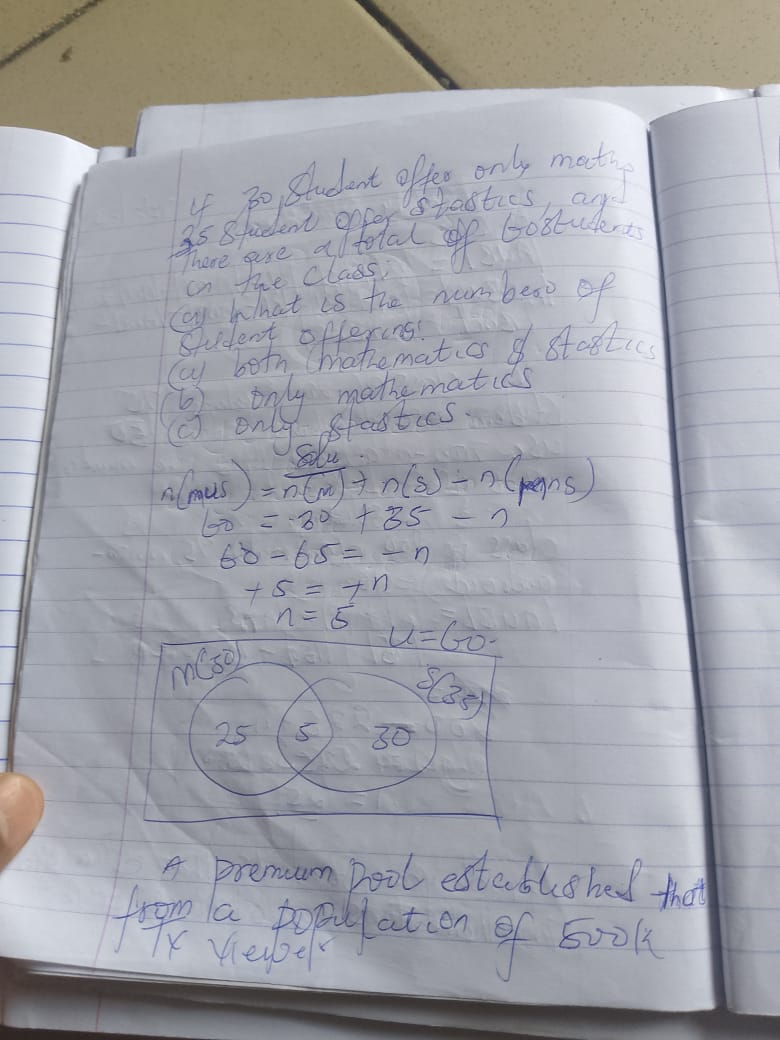 If 30 Student offer only maths
35 Student offer stastics, and
there are a total of 60 students
in the class;
(a) What is the number of
Student offering:
(a) both mathematics & stastics
(b) only mathematics
(c) only stastics.
Solu.
n(mus) = n(m) + n(s) - n(mns)
60 = 30 + 35 - n
60 - 65 = - n
+5 = +n
n = 5
u=60.
m(30)
S(35)
25 5 30
A premium pool established that
from a population of 500k
TV